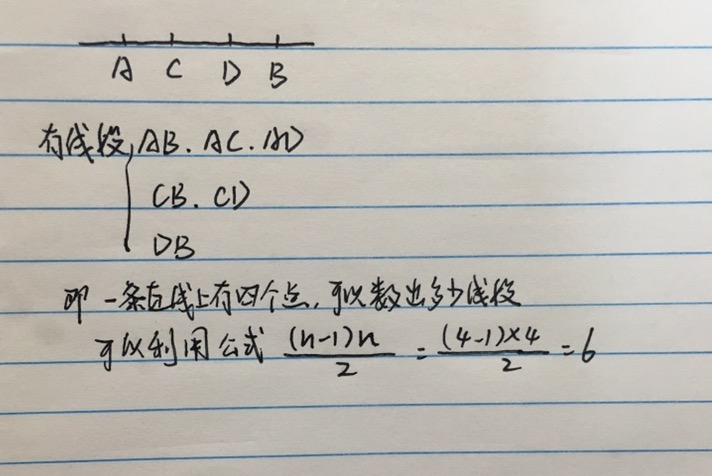 A C D B
有线段 AB. AC. AD
CB. CD
DB
即一条直线上有四个点,可以数出多少线段
可以利用公式 (n-1)n/2 = (4-1)×4/2 = 6